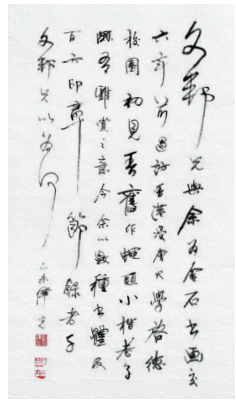 文邦兄與余為金石書画交
六年前過訪浸會大學啓德
校園初見吾舊作蠅頭小楷老子
有雅賞之意今余以數種書體及
百方印章節錄老子
文邦兄以為何